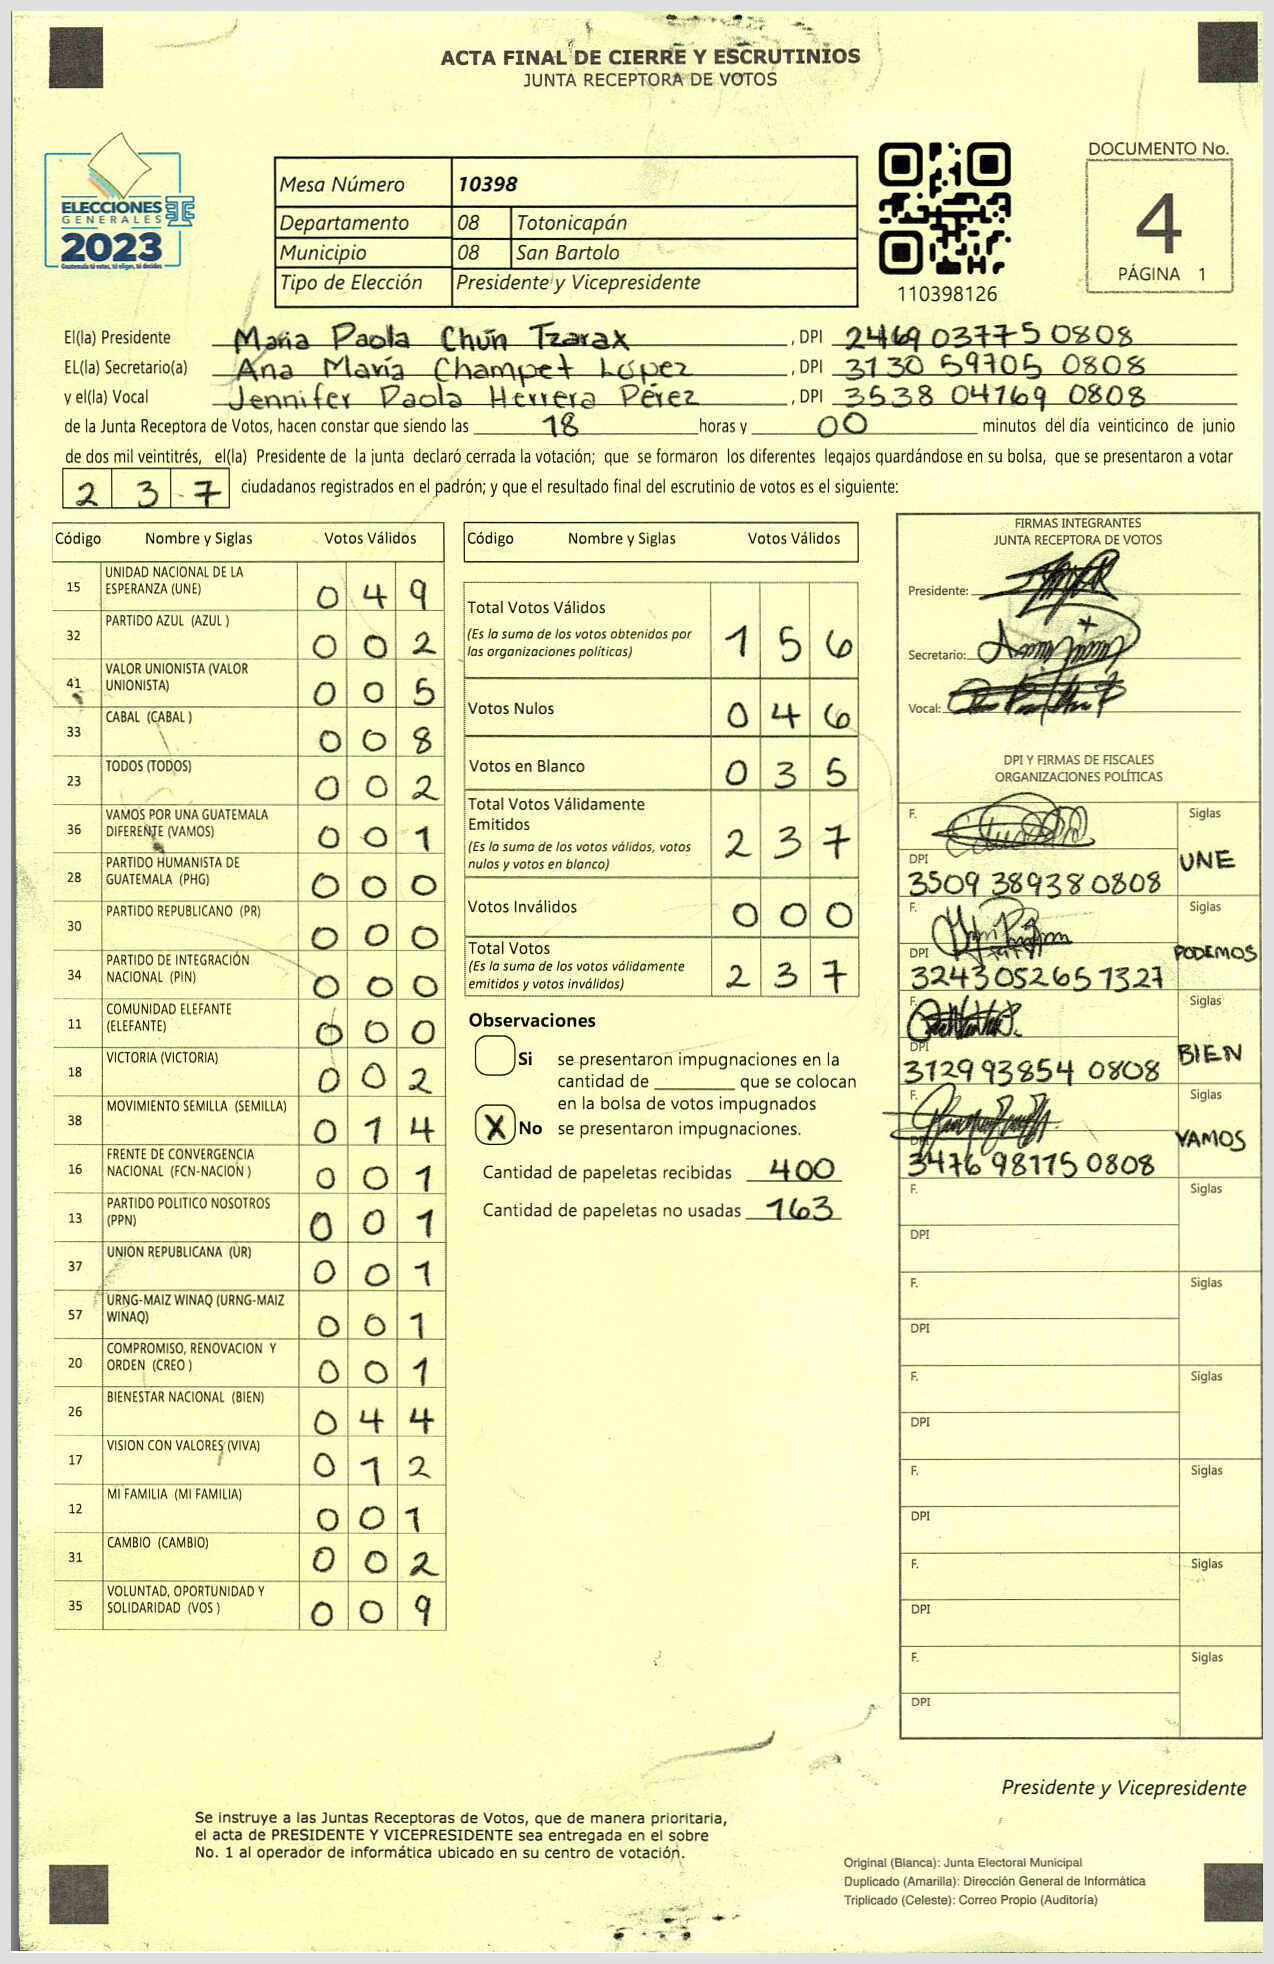 ACTA FINAL DE CIERRE Y ESCRUTINIOS
JUNTA RECEPTORA DE VOTOS
ELECCIONES
GENERALES
2023
Guatemala tú votas, tú eliges, tú decides
Mesa Número 10398
Departamento 08 Totonicapán
Municipio 08 San Bartolo
Tipo de Elección Presidente y Vicepresidente
110398126
DOCUMENTO No.
4
PÁGINA 1
El(la) Presidente Maria Paola Chún Tzarax , DPI 2469 03775 0808
EL(la) Secretario(a) Ana María Champet López , DPI 3130 59705 0808
y el(la) Vocal Jennifer Paola Herrera Pérez , DPI 3538 04769 0808
de la Junta Receptora de Votos, hacen constar que siendo las 18 horas y 00 minutos del día veinticinco de junio
de dos mil veintitrés, el(la) Presidente de la junta declaró cerrada la votación; que se formaron los diferentes legajos guardándose en su bolsa, que se presentaron a votar
2 3 7 ciudadanos registrados en el padrón; y que el resultado final del escrutinio de votos es el siguiente:
Código Nombre y Siglas Votos Válidos
15 UNIDAD NACIONAL DE LA ESPERANZA (UNE) 0 4 9
32 PARTIDO AZUL (AZUL ) 0 0 2
41 VALOR UNIONISTA (VALOR UNIONISTA) 0 0 5
33 CABAL (CABAL ) 0 0 8
23 TODOS (TODOS) 0 0 2
36 VAMOS POR UNA GUATEMALA DIFERENTE (VAMOS) 0 0 1
28 PARTIDO HUMANISTA DE GUATEMALA (PHG) 0 0 0
30 PARTIDO REPUBLICANO (PR) 0 0 0
34 PARTIDO DE INTEGRACIÓN NACIONAL (PIN) 0 0 0
11 COMUNIDAD ELEFANTE (ELEFANTE) 0 0 0
18 VICTORIA (VICTORIA) 0 0 2
38 MOVIMIENTO SEMILLA (SEMILLA) 0 1 4
16 FRENTE DE CONVERGENCIA NACIONAL (FCN-NACION ) 0 0 1
13 PARTIDO POLITICO NOSOTROS (PPN) 0 0 1
37 UNION REPUBLICANA (UR) 0 0 1
57 URNG-MAIZ WINAQ (URNG-MAIZ WINAQ) 0 0 1
20 COMPROMISO, RENOVACION Y ORDEN (CREO ) 0 0 1
26 BIENESTAR NACIONAL (BIEN) 0 4 4
17 VISION CON VALORES (VIVA) 0 1 2
12 MI FAMILIA (MI FAMILIA) 0 0 1
31 CAMBIO (CAMBIO) 0 0 2
35 VOLUNTAD, OPORTUNIDAD Y SOLIDARIDAD (VOS ) 0 0 9
Código Nombre y Siglas Votos Válidos
Total Votos Válidos
(Es la suma de los votos obtenidos por
las organizaciones políticas) 1 5 6
Votos Nulos 0 4 6
Votos en Blanco 0 3 5
Total Votos Válidamente
Emitidos
(Es la suma de los votos válidos, votos
nulos y votos en blanco) 2 3 7
Votos Inválidos 0 0 0
Total Votos
(Es la suma de los votos válidamente
emitidos y votos inválidos) 2 3 7
Observaciones
Si se presentaron impugnaciones en la
cantidad de ________ que se colocan
en la bolsa de votos impugnados
X No se presentaron impugnaciones.
Cantidad de papeletas recibidas 400
Cantidad de papeletas no usadas 163
FIRMAS INTEGRANTES
JUNTA RECEPTORA DE VOTOS
Presidente:
Secretario:
Vocal:
DPI Y FIRMAS DE FISCALES
ORGANIZACIONES POLÍTICAS
F. Siglas
UNE
DPI
3509 38938 0808
F. Siglas
PODEMOS
DPI
3243 05265 1327
F. Siglas
BIEN
DPI
3129 93854 0808
F. Siglas
VAMOS
DPI
3476 98175 0808
F. Siglas
DPI
F. Siglas
DPI
F. Siglas
DPI
F. Siglas
DPI
F. Siglas
DPI
F. Siglas
DPI
Presidente y Vicepresidente
Se instruye a las Juntas Receptoras de Votos, que de manera prioritaria,
el acta de PRESIDENTE Y VICEPRESIDENTE sea entregada en el sobre
No. 1 al operador de informática ubicado en su centro de votación.
Original (Blanca): Junta Electoral Municipal
Duplicado (Amarilla): Dirección General de Informática
Triplicado (Celeste): Correo Propio (Auditoría)